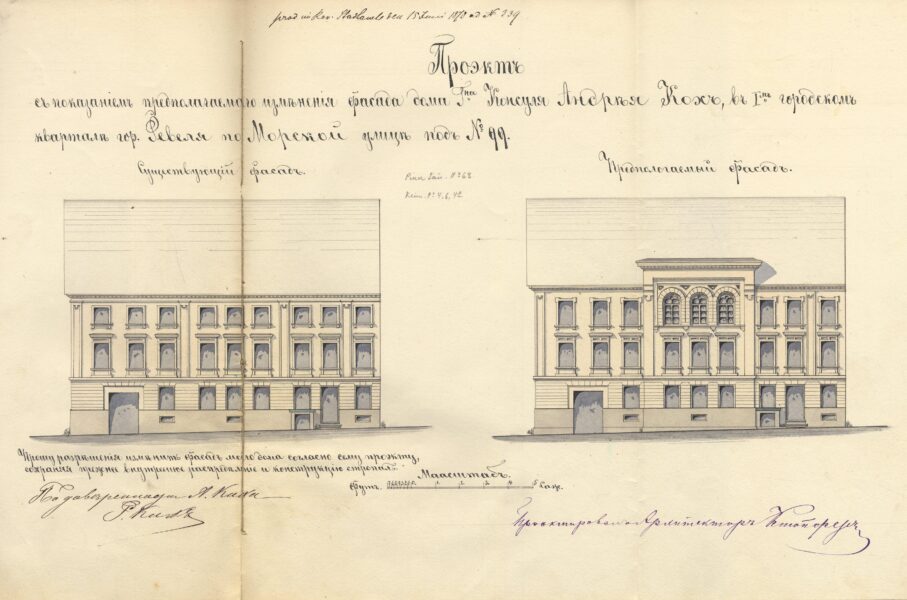 15 Juni 1878 № 339
Проэктъ
съ показаніемъ предполагаемого измѣненія фасада дома Гна Консуля Андрея Кохъ, въ Iмъ городскомъ
кварталѣ гор. Ревеля по Морской улицѣ подъ № 99.
Существующій фасадъ.
Предпологаемый фасадъ.
№ 62
Прошу разрѣшенія измѣнить фасадъ моего дома согласно сему проэкту,
сохраняя прежнее внутреннее распредѣленіе и конструкцію стропилъ.
Маасштабъ.
Футъ. Саж.
По довѣренности А. Кохъ
Р. Кохъ
Проэктировалъ Архитекторъ